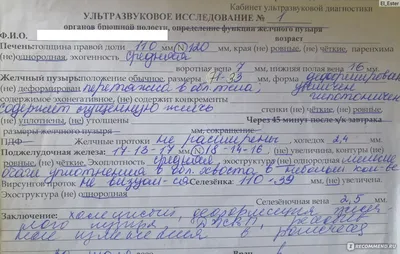 El_Ester
Кабинет ультразвуковой диагностики
УЛЬТРАЗВУКОВОЕ ИССЛЕДОВАНИЕ № 1
органов брюшной полости, определение функции желчного пузыря
Ф.И.О. возраст
Печень: толщина правой доли 110 мм, (N) 120 мм, края (не) ровные, (не) чёткие, паренхима
(не) однородная, эхогенность средняя
воротная вена 7 мм, нижняя полая вена 16 мм,
Желчный пузырь: положение обычное, размеры 71-33 мм, форма деформирован
(не) деформирован перетяжка в области
содержит сгущенную желчь
содержимое эхонегативное, (не) содержит конкременты
стенки (не) ровные, (не) чёткие,
(не) уплотнены, (не) утолщены Через 45 минут после х/к завтрака
размеры желчного пузыря мм, сокращение
Желчные протоки не расширены холедох 2,4 мм
Поджелудочная железа: 17-13-17 мм (N) 18-14-16 мм, (не) увеличена, контуры
(не) ровные, (не) чёткие. Эхоплотность средняя, эхоструктура (не) однородная
уплотнения в обл. хвоста в
Вирсунгов проток не визуализ-ся Селезёнка: 110-39 мм, (не) увеличена
Эхоструктура (не) однородная
Селезёночная вена 2,5 мм.
Заключение: холецистит, деформация желч
ного пузыря, ДЖВП,
ные изменения в
Врач
IRECOMMEND.RU